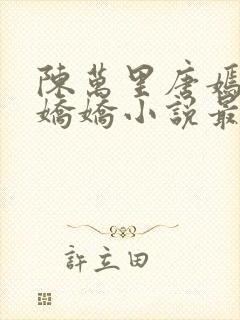 陳萬里唐嫣
嬌嬌小說最
許立田